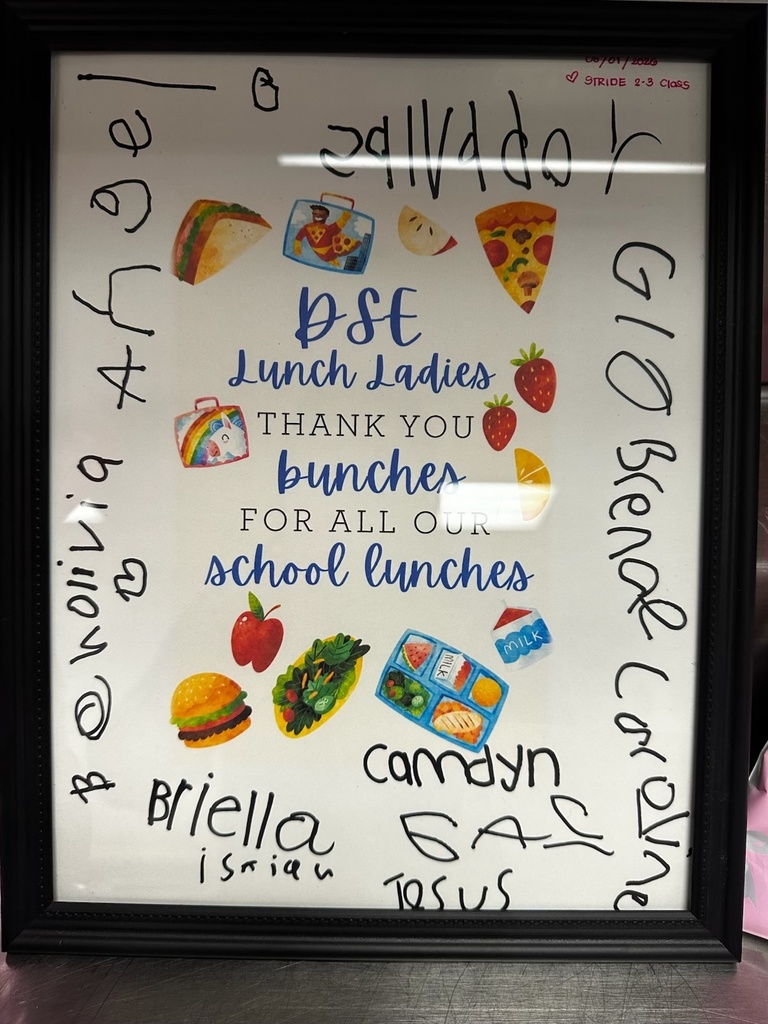 06/01/2026
♡ STRIDE 2-3 Class
DSE
Lunch Ladies
THANK YOU
bunches
FOR ALL OUR
school lunches
MILK
MILK
GIO Brenal Caroline
Camdyn
Briella
isaiah
Jesus
Angel